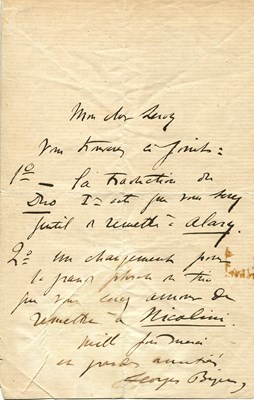 Mon cher Leroy
Vous trouverez ci joints =
1º _ la traduction du
Duo I acte que vous serez
gentil de remettre à Alary.
2º un changement pour
la grande phrase du trio
que vous serez aimable de
remettre à Nicolini.
mille fois merci
et grandes amitiés.
Georges